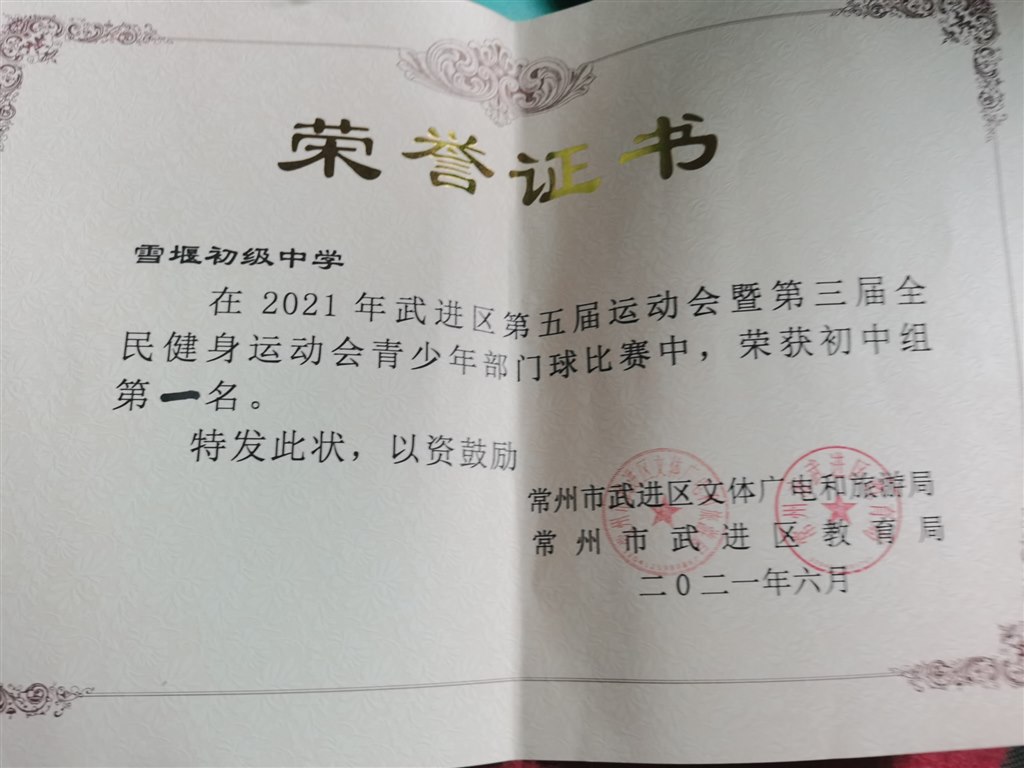 荣誉证书
雪堰初级中学
在 2021 年武进区第五届运动会暨第三届全
民健身运动会青少年部门球比赛中，荣获初中组
第一名。
特发此状，以资鼓励
常州市武进区文体广电和旅游局
常州市武进区教育局
二〇二一年六月